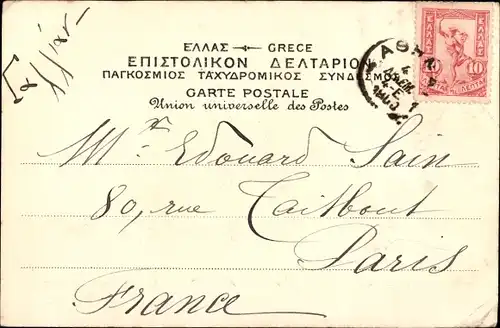 ΕΛΛΑΣ GRECE
ΕΠΙΣΤΟΛΙΚΟΝ ΔΕΛΤΑΡΙΟ
ΠΑΓΚΟΣΜΙΟΣ ΤΑΧΥΔΡΟΜΙΚΟΣ ΣΥΝΔΕΣΜΟ
CARTE POSTALE
Union universelle des Postes
ΕΛΛΑΣ
10
ΛΕΠΤΑ
Mr Edouard Sain
80, rue Taitbout
Paris
France